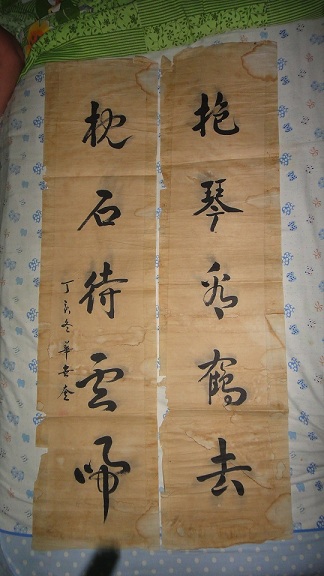 抱琴看鶴去
枕石待雲歸
丁亥冬華世奎